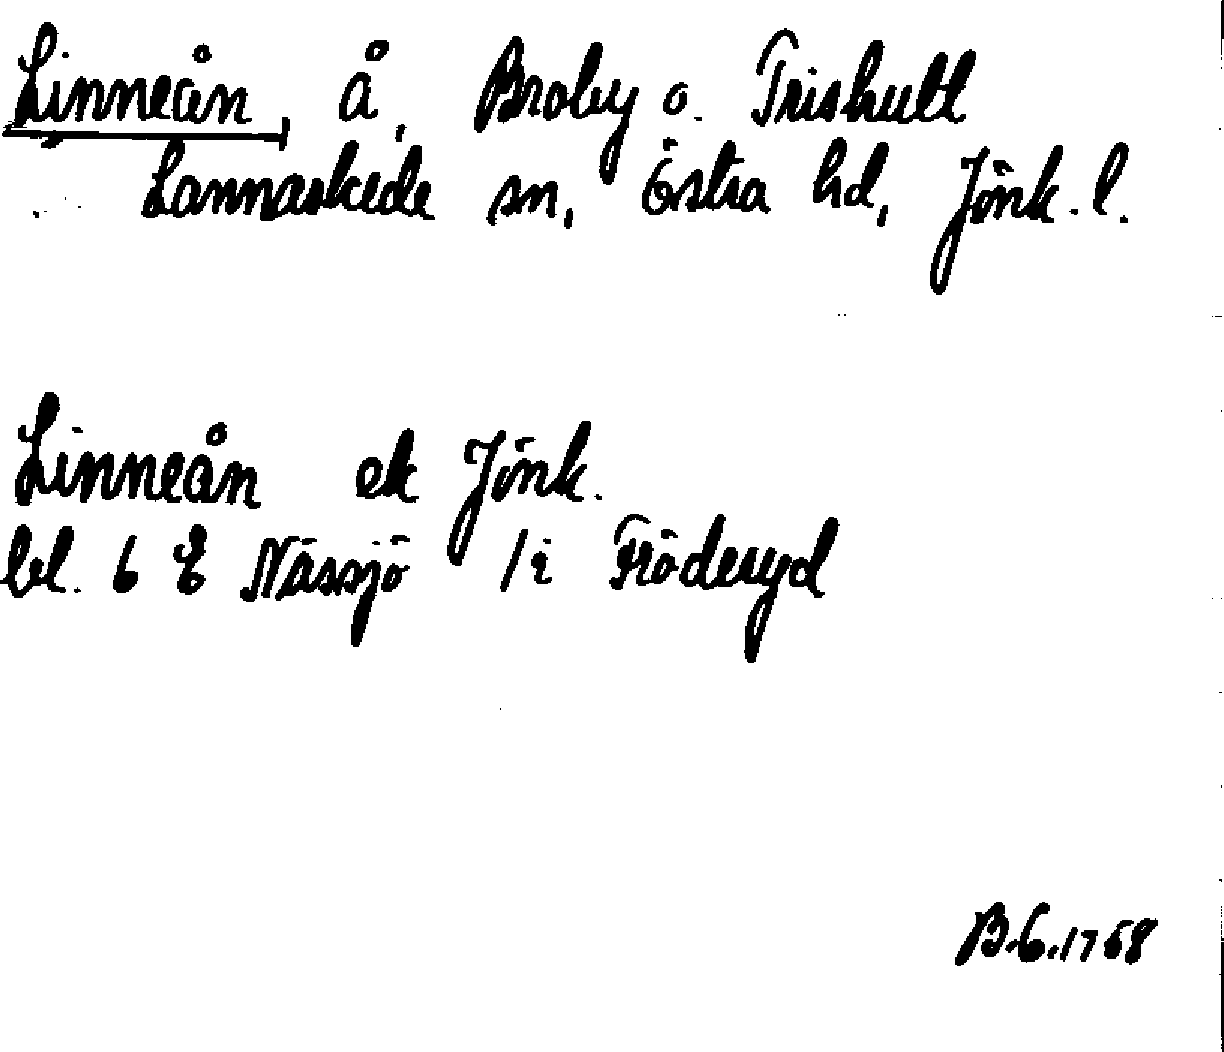 Linneån, å, Broby o. Trishult
Lannaskede sn, Östra hd, Jönk. l.
Linneån ek Jönk.
bl. 6 E Nässjö /i Fröderyd
B.6.1768